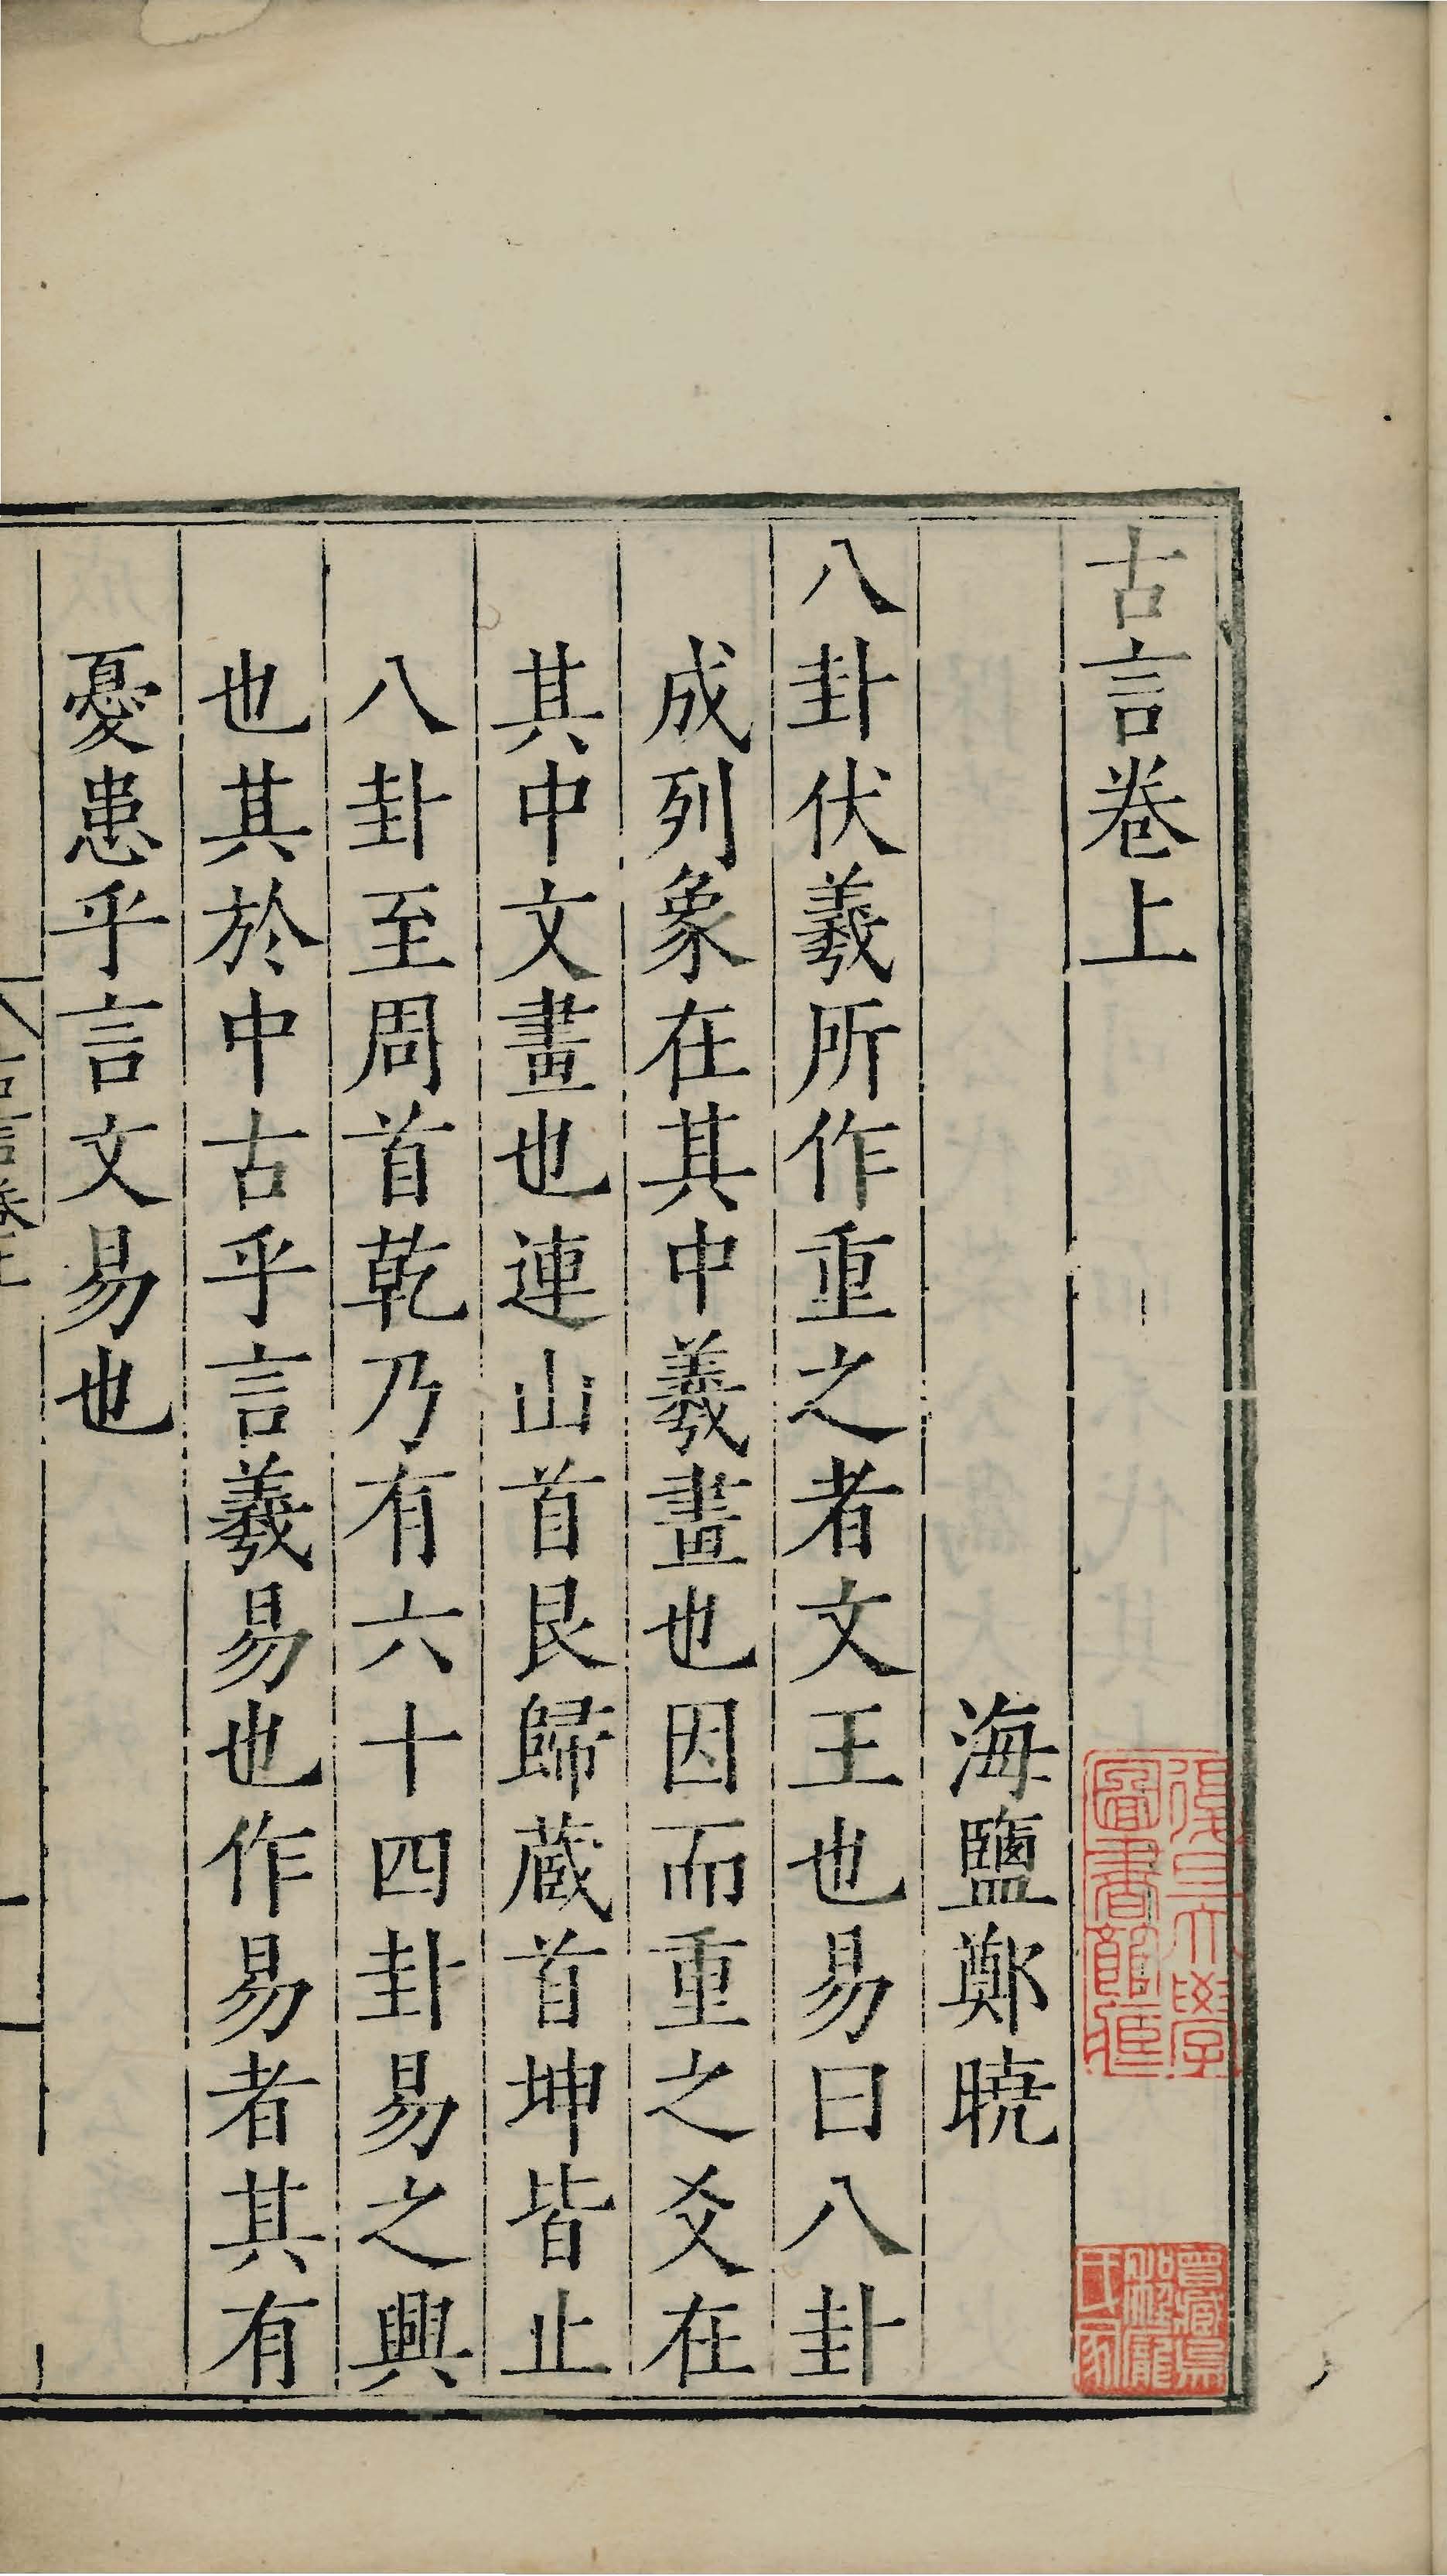 古言卷上
海鹽鄭曉
八卦伏羲所作重之者文王也易曰八卦
成列象在其中羲畫也因而重之爻在
其中文畫也連山首艮歸蔵首坤皆止
八卦至周首乾乃有六十四卦易之興
也其於中古乎言羲易也作易者其有
憂患乎言文易也
古言卷上
復旦大學
圖書館藏